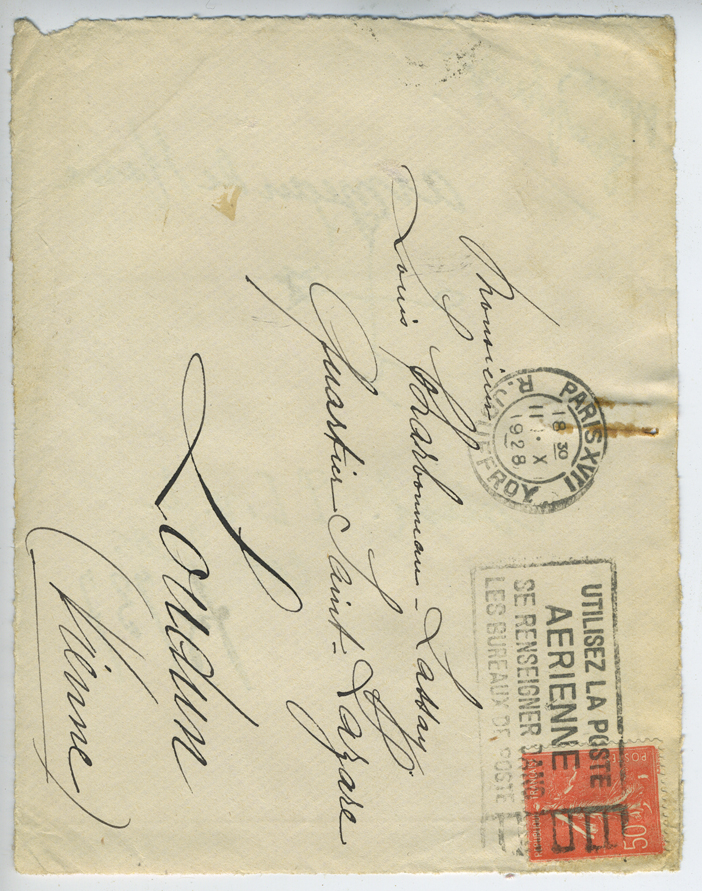 PARIS XVII
R. JOUFFROY
18 30
11 · X
1928
UTILISEZ LA POSTE
AERIENNE
SE RENSEIGNER DANS
LES BUREAUX DE POSTE
50c
POSTES
Monsieur
Louis Charbonneau-Lassay
Quartier Saint-Lazare
Loudun
(Vienne)